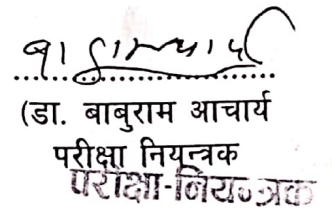 (डा. बाबुराम आचार्य
परीक्षा नियन्त्रक
परीक्षा-नियन्त्रक